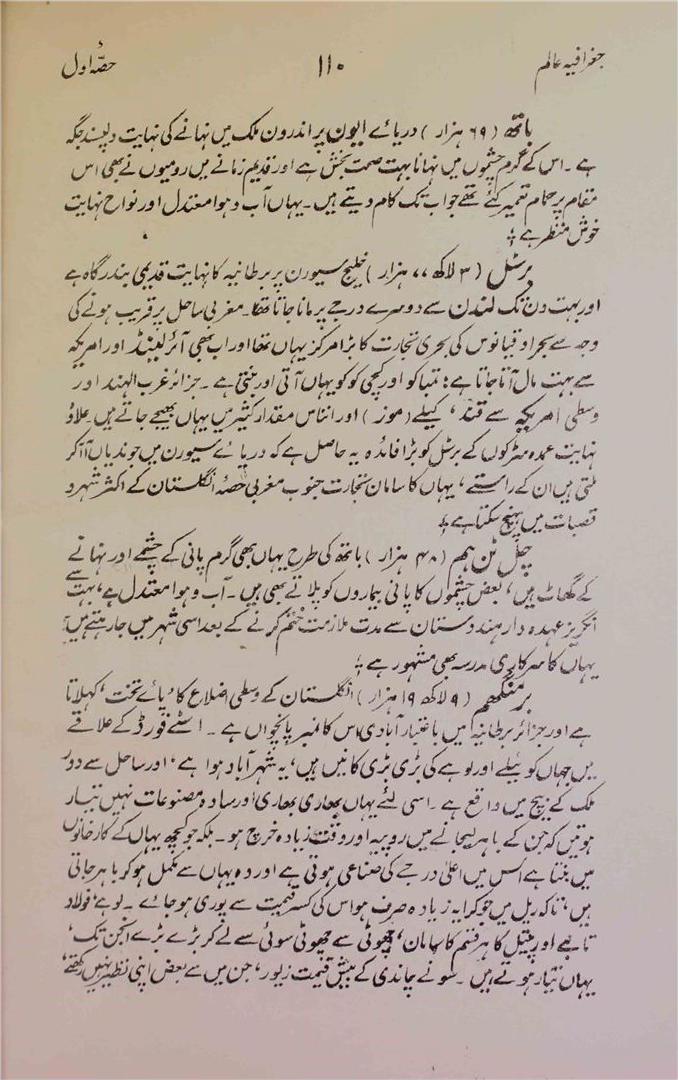 جغرافیہ عالم ۱۱۰ حصّہ اول
باتھ (۶۹ ہزار) دریائے ایون پر اندرون ملک میں نہانے کی نہایت دلپسند جگہ
ہے ۔ اس کے گرم چشموں میں نہانا بہت صحت بخش ہے اور قدیم زمانے میں رومیوں نے بھی اس
مقام پر حمام تعمیر کئے تھے جو اب تک کام دیتے ہیں ۔ یہاں آب و ہوا معتدل اور نواح نہایت
خوش منظر ہے ؛
برسٹل (۳ لاکھ ۷۷ ہزار) خلیج سیورن پر برطانیہ کا نہایت قدیمی بندرگاہ ہے
اور بہت دن تک لندن سے دوسرے درجے پر مانا جاتا تھا ۔ مغربی ساحل پر قریب ہونے کی
وجہ سے بحر اوقیانوس کی بحری تجارت کا بڑا مرکز یہاں تھا اور اب بھی آئرلینڈ اور امریکہ
سے بہت مال آتا جاتا ہے : تمباکو اور کچی کوکو یہاں آتی اور بنتی ہے ۔ جزائر غرب الہند اور
وسطی امریکہ سے قند ، کیلے (موز) اور انناس مقدار کثیر میں یہاں بھیجے جاتے ہیں ۔ علاوہ
نہایت عمدہ سڑکوں کے برسٹل کو بڑا فائدہ یہ حاصل ہے کہ دریائے سیورن میں جو ندیاں آ آ کر
ملتی ہیں ان کے راستے ، یہاں کا سامان تجارت جنوب مغربی حصہ انگلستان کے اکثر شہر و
قصبات میں پہنچ سکتا ہے ؛
چل ٹن ہیم (۴۸ ہزار) باتھ کی طرح یہاں بھی گرم پانی کے چشمے اور نہانے
کے گھاٹ ہیں ، بعض چشموں کا پانی بیماروں کو پلاتے بھی ہیں ۔ آب و ہوا معتدل ہے ، بہت سے
انگریز عہدہ دار ہندوستان سے مدت ملازمت ختم کرنے کے بعد اسی شہر میں جا رہتے ہیں ۔
یہاں کا سرکاری مدرسہ بھی مشہور ہے ؛
برمنگھم (۹ لاکھ ۱۹ ہزار) انگلستان کے وسطی اضلاع کا ' پائے تخت ' کہلاتا
ہے اور جزائر برطانیہ میں باعتبار آبادی اس کا نمبر پانچواں ہے ۔ اسٹے فورڈ کے علاقے
میں جہاں کوئیلے اور لوہے کی بڑی بڑی کانیں ہیں ، یہ شہر آباد ہوا ہے ، اور ساحل سے دور
ملک کے بیچ میں واقع ہے ۔ اسی لئے یہاں بھاری بھاری اور سادہ مصنوعات نہیں تیار
ہوتیں کہ جن کے باہر لیجانے میں روپیہ اور وقت زیادہ خرچ ہو ۔ بلکہ جو کچھ یہاں کے کارخانوں
میں بنتا ہے اس میں اعلیٰ درجے کی صناعی ہوتی ہے اور وہ یہاں سے مکمل ہو کر باہر جاتی
ہیں ، تاکہ ریل میں جو کرایہ زیادہ صرف ہو اس کی کسر قیمت سے پوری ہو جائے ۔ لوہے ، فولاد
تانبے اور پیتل کا ہر قسم کا سامان ، چھوٹی سے چھوٹی سوئی سے لے کر بڑے بڑے انجن تک ،
یہاں تیار ہوتے ہیں ۔ سونے چاندی کے بیش قیمت زیور ، جن میں سے بعض اپنی نظیر نہیں رکھتے ،